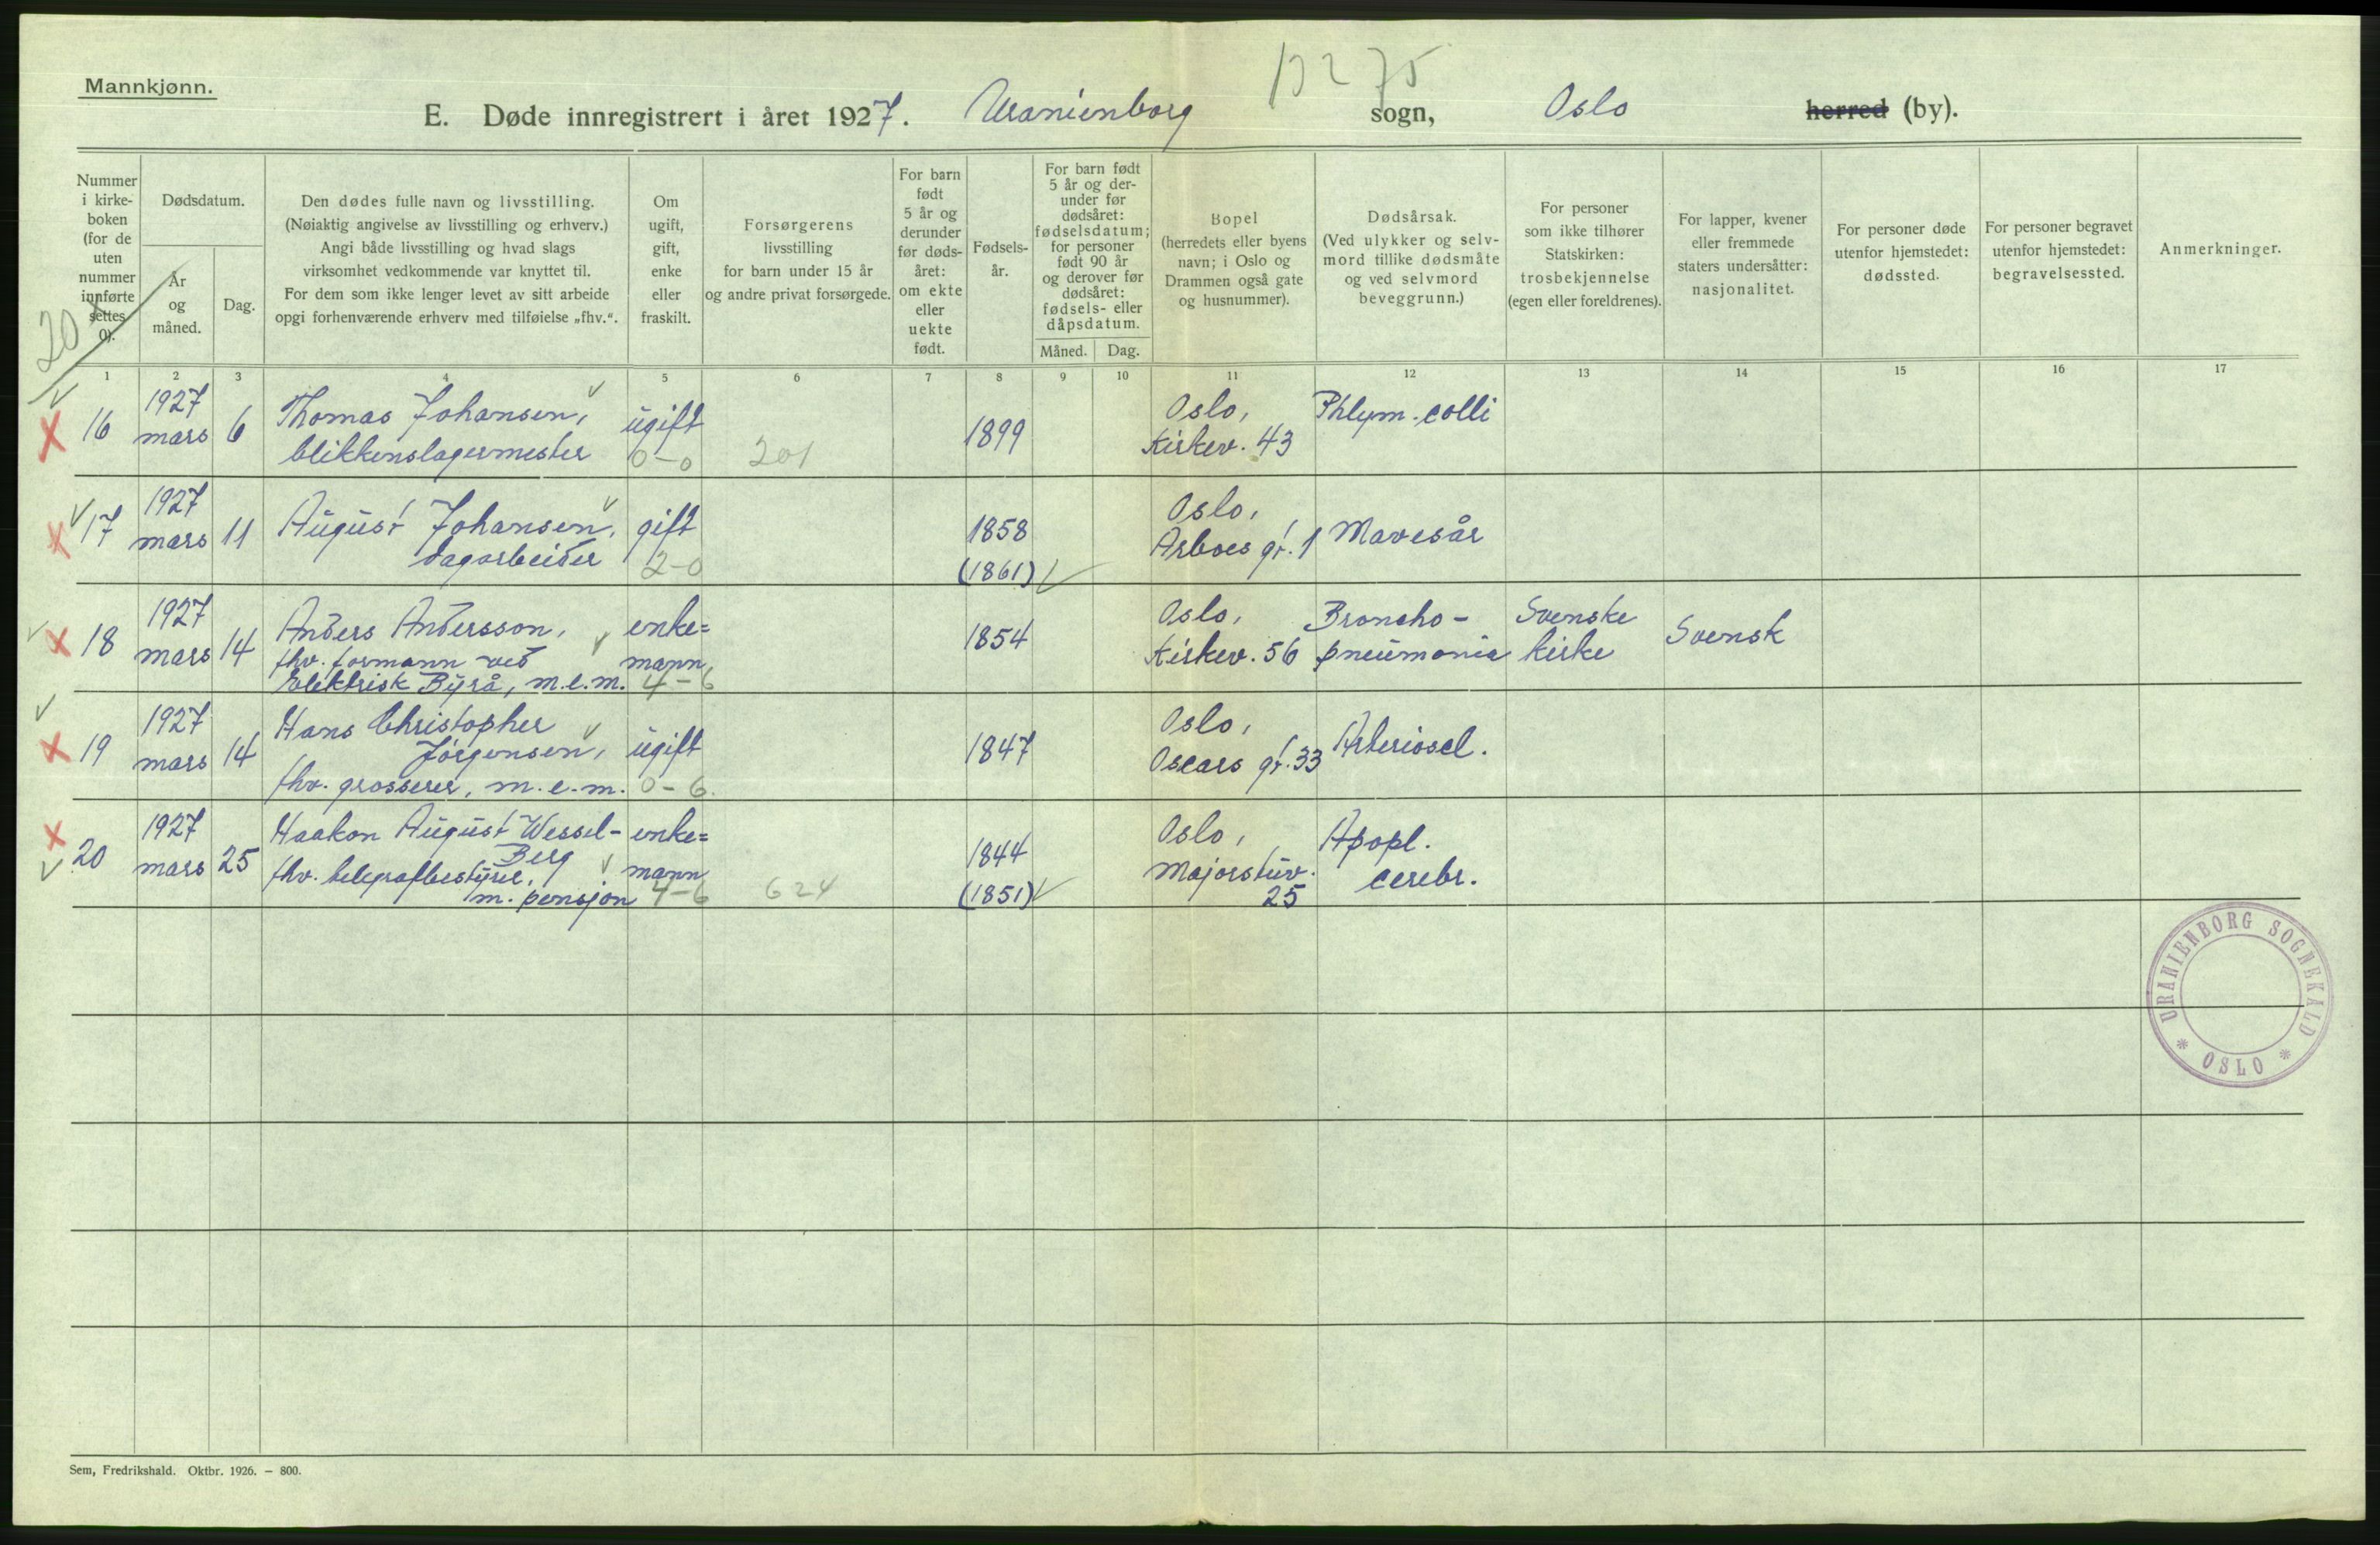 Mannkjønn.
13275
E. Døde innregistrert i året 1927. Uranienborg sogn, Oslo herred (by).
Nummer i kirke-boken (for de uten nummer innførte settes 0).
Dødsdatum.
År og måned.
Dag.
Den dødes fulle navn og livsstilling.
(Nøiaktig angivelse av livsstilling og erhverv.)
Angi både livsstilling og hvad slags
virksomhet vedkommende var knyttet til.
For dem som ikke lenger levet av sitt arbeide
opgi forhenværende erhverv med tilføielse „fhv.“.
Om ugift, gift, enke eller fraskilt.
Forsørgerens
livsstilling
for barn under 15 år
og andre privat forsørgede.
For barn født 5 år og derunder før døds-året: om ekte eller uekte født.
Fødsels-år.
For barn født 5 år og der-under før dødsåret: fødselsdatum; for personer født 90 år og derover før dødsåret: fødsels- eller dåpsdatum.
Måned. Dag.
Bopel
(herredets eller byens
navn; i Oslo og
Drammen også gate
og husnummer).
Dødsårsak.
(Ved ulykker og selv-
mord tillike dødsmåte
og ved selvmord
beveggrunn.)
For personer
som ikke tilhører
Statskirken:
trosbekjennelse
(egen eller foreldrenes).
For lapper, kvener
eller fremmede
staters undersåtter:
nasjonalitet.
For personer døde
utenfor hjemstedet:
dødssted.
For personer begravet
utenfor hjemstedet:
begravelsessted.
Anmerkninger.
20
1 2 3 4 5 6 7 8 9 10 11 12 13 14 15 16 17
16 1927 mars 6 Thomas Johansen, ugift 1899 Oslo, Phlegm. colli
blikkenslagermester 0-0 201 Kirkev. 43
17 1927 mars 11 August Johansen, gift 1858 Oslo, Mavesår
dagarbeider 2-0 (1861) Arboes gt. 1
18 1927 mars 14 Anders Andersson, enke= 1854 Oslo, Broncho- Svenske Svensk
fhv. formann ved mann, Kirkev. 56 pneumonia kirke
Elektrisk Byrå, m.e.m. 4-6
19 1927 mars 14 Hans Christopher ugift 1847 Oslo, Arterioscl.
Jörgensen, Oscars gt. 33
fhv. grosserer, m.e.m. 0-6.
20 1927 mars 25 Haakon August Wessel- enke= 1844 Oslo, Apopl.
Berg mann (1851) Majorstuv. cerebr.
fhv. telegrafbestyrer, 25
m. pensjon 4-6 624
URANIENBORG SOGNEKALD * OSLO *
Sem, Fredrikshald. Oktbr. 1926. — 800.